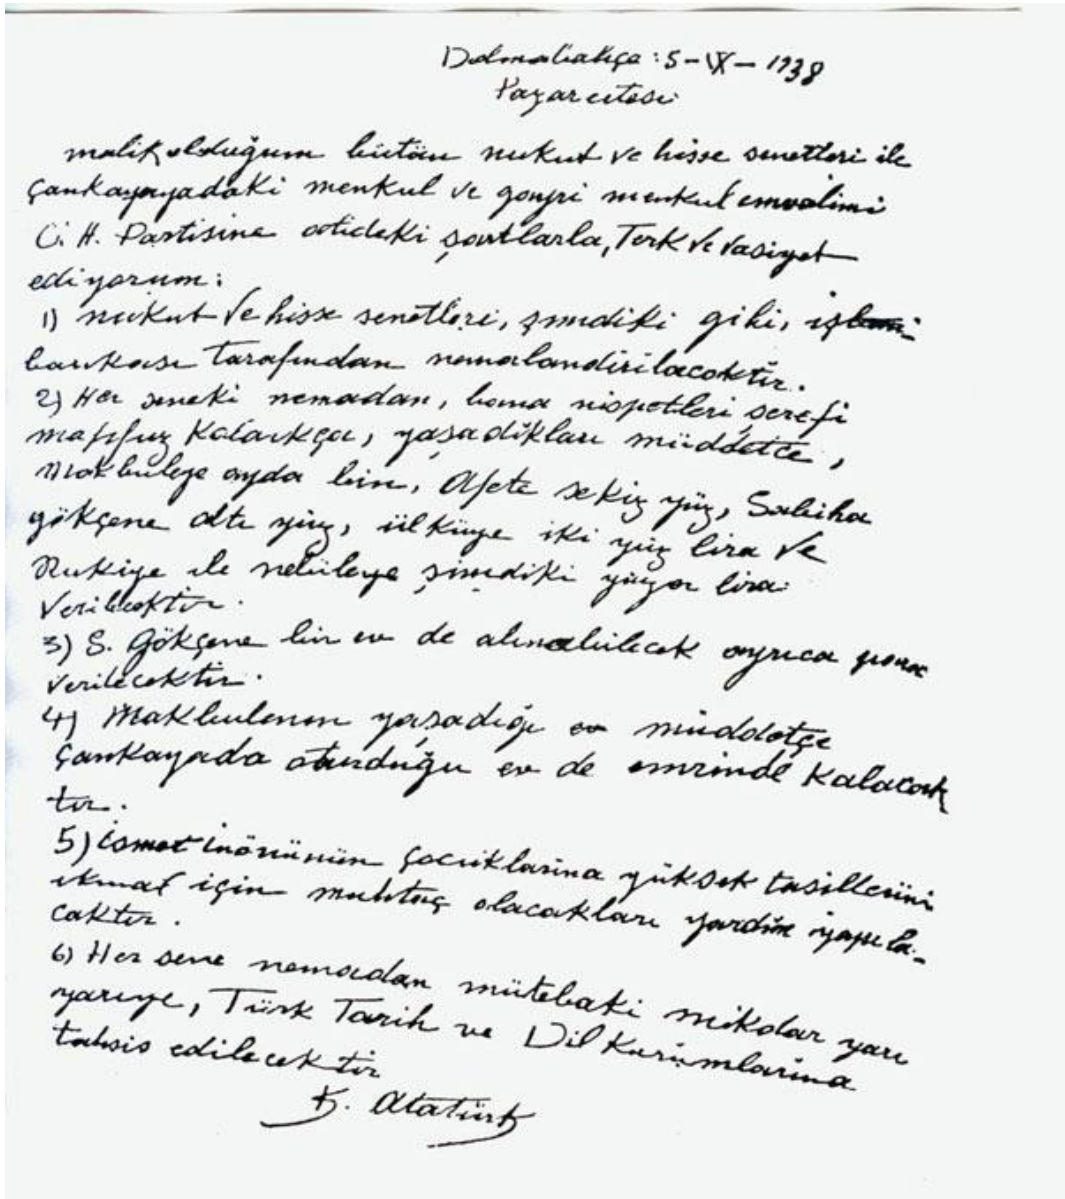 Dolmabahçe : 5 - IX - 1938
Pazar ertesi
malik olduğum bütün nukut ve hisse senetleri ile
Çankayayadaki menkul ve gayri menkul emvalimi
C. H. Partisine atideki şartlarla, Terk ve vasiyet
ediyorum :
1) nukut ve hisse senetleri, şimdiki gibi, iş
bankası tarafından nemalandırılacaktır.
2) Her seneki nemadan, bana nispetleri şerefi
mahfuz kaldıkça, yaşadıkları müddetce,
Makbuleye ayda bin, Afete sekiz yüz, Sabiha
gökçene altı yüz, ülküye iki yüz lira ve
Rukiye ile nebileye şimdiki yüzer lira
verilecektir.
3) S. Gökçene bir ev de alınabilecek ayrıca para
verilecektir.
4) Makbulenin yaşadığı müddetçe
Çankayada oturduğu ev de emrinde kalacak
tır.
5) ismet inönünün çocuklarına yüksek tasillerini
ikmal için muhtaç olacakları yardım yapıla-
caktır.
6) Her sene nemadan mütebaki miktar yarı
yarıye, Türk Tarih ve Dil Kurumlarına
tahsis edilecektir
K. Atatürk